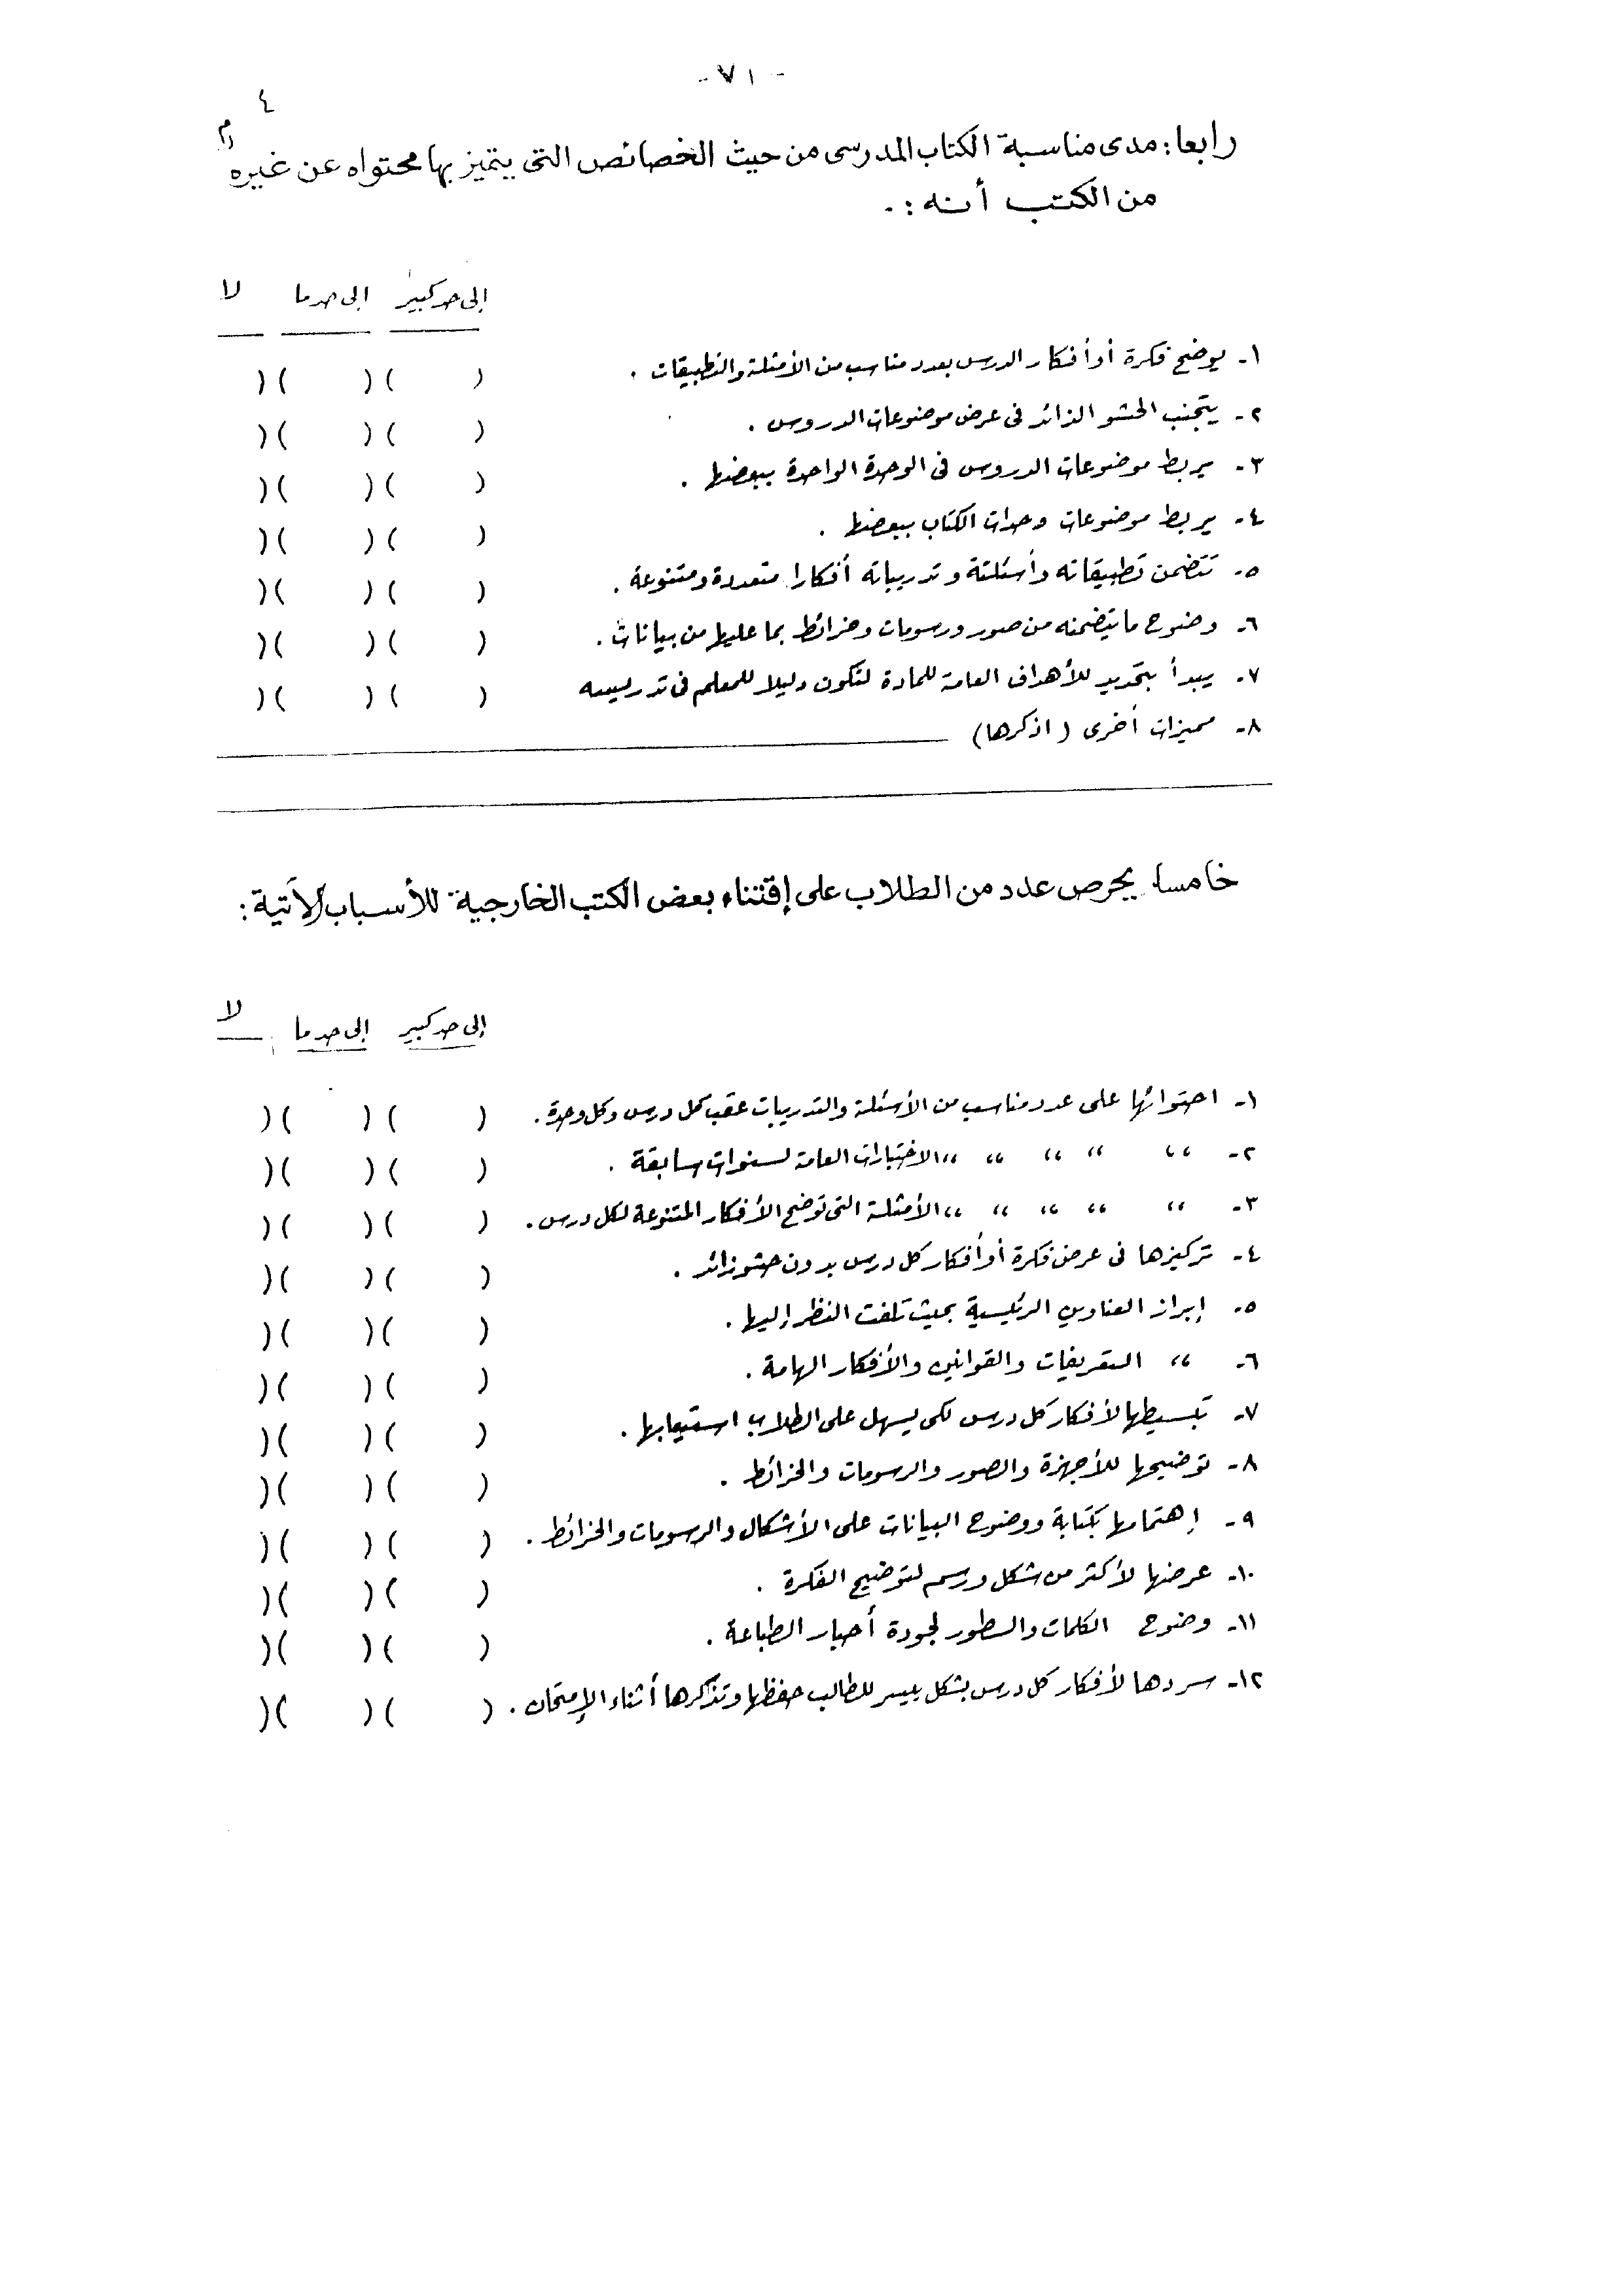 - ٧١ -
٤
رابعا: مدى مناسبة الكتاب المدرسى من حيث الخصائص التى يتميز بها محتواه عن غيره
من الكتب أنه :.
إلى حد كبير إلى حد ما لا
١- يوضح فكرة أو أفكار الدرس بعدد مناسب من الأمثلة والتطبيقات . ( ) ( ) ( )
٢- يتجنب الحشو الزائد فى عرض موضوعات الدروس . ( ) ( ) ( )
٣- يربط موضوعات الدروس فى الوحدة الواحدة ببعضها . ( ) ( ) ( )
٤- يربط موضوعات وحدات الكتاب ببعضها . ( ) ( ) ( )
٥- تتضمن تطبيقاته وأسئلتة وتدريباته أفكارا متعددة ومتنوعة . ( ) ( ) ( )
٦- وضوح ما يتضمنه من صور ورسومات وخرائط بما عليها من بيانات . ( ) ( ) ( )
٧- يبدأ بتحديد للأهداف العامة للمادة لتكون دليلا للمعلم فى تدريسه ( ) ( ) ( )
٨- مميزات أخرى ( اذكرها )
خامسا. يحرص عدد من الطلاب على إقتناء بعض الكتب الخارجية للأسباب الآتية :
إلى حد كبير إلى حد ما لا
١- احتوائها على عدد مناسب من الأسئلة والتدريبات عقب كل درس وكل وحدة . ( ) ( ) ( )
٢- ،، ،، ،، ،، ،، الاختبارات العامة لسنوات سابقة . ( ) ( ) ( )
٣- ،، ،، ،، ،، ،، الأمثلة التى توضح الأفكار المتنوعة لكل درس . ( ) ( ) ( )
٤- تركيزها فى عرض فكرة أو أفكار كل درس بدون حشو زائد . ( ) ( ) ( )
٥- إبراز العناوين الرئيسية بحيث تلفت النظر إليها . ( ) ( ) ( )
٦- ،، التعريفات والقوانين والأفكار الهامة . ( ) ( ) ( )
٧- تبسيطها لأفكار كل درس لكى يسهل على الطلاب استيعابها . ( ) ( ) ( )
٨- توضيحها للأجهزة والصور والرسومات والخرائط . ( ) ( ) ( )
٩- إهتمامها بكتابة ووضوح البيانات على الأشكال والرسومات والخرائط . ( ) ( ) ( )
١٠- عرضها لأكثر من شكل ورسم لتوضيح الفكرة . ( ) ( ) ( )
١١- وضوح الكلمات والسطور لجودة أحبار الطباعة . ( ) ( ) ( )
١٢- سردها لأفكار كل درس بشكل ييسر للطالب حفظها وتذكرها أثناء الإمتحان . ( ) ( ) ( )